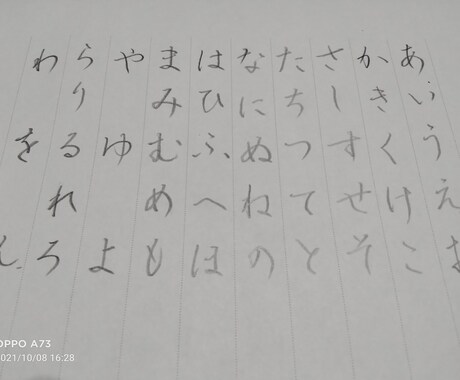 あいうえお
かきくけこ
さしすせそ
たちつてと
なにぬねの
はひふへほ
まみむめも
やゆよ
らりるれろ
わをん
OPPO A73
2021/10/08 16:28